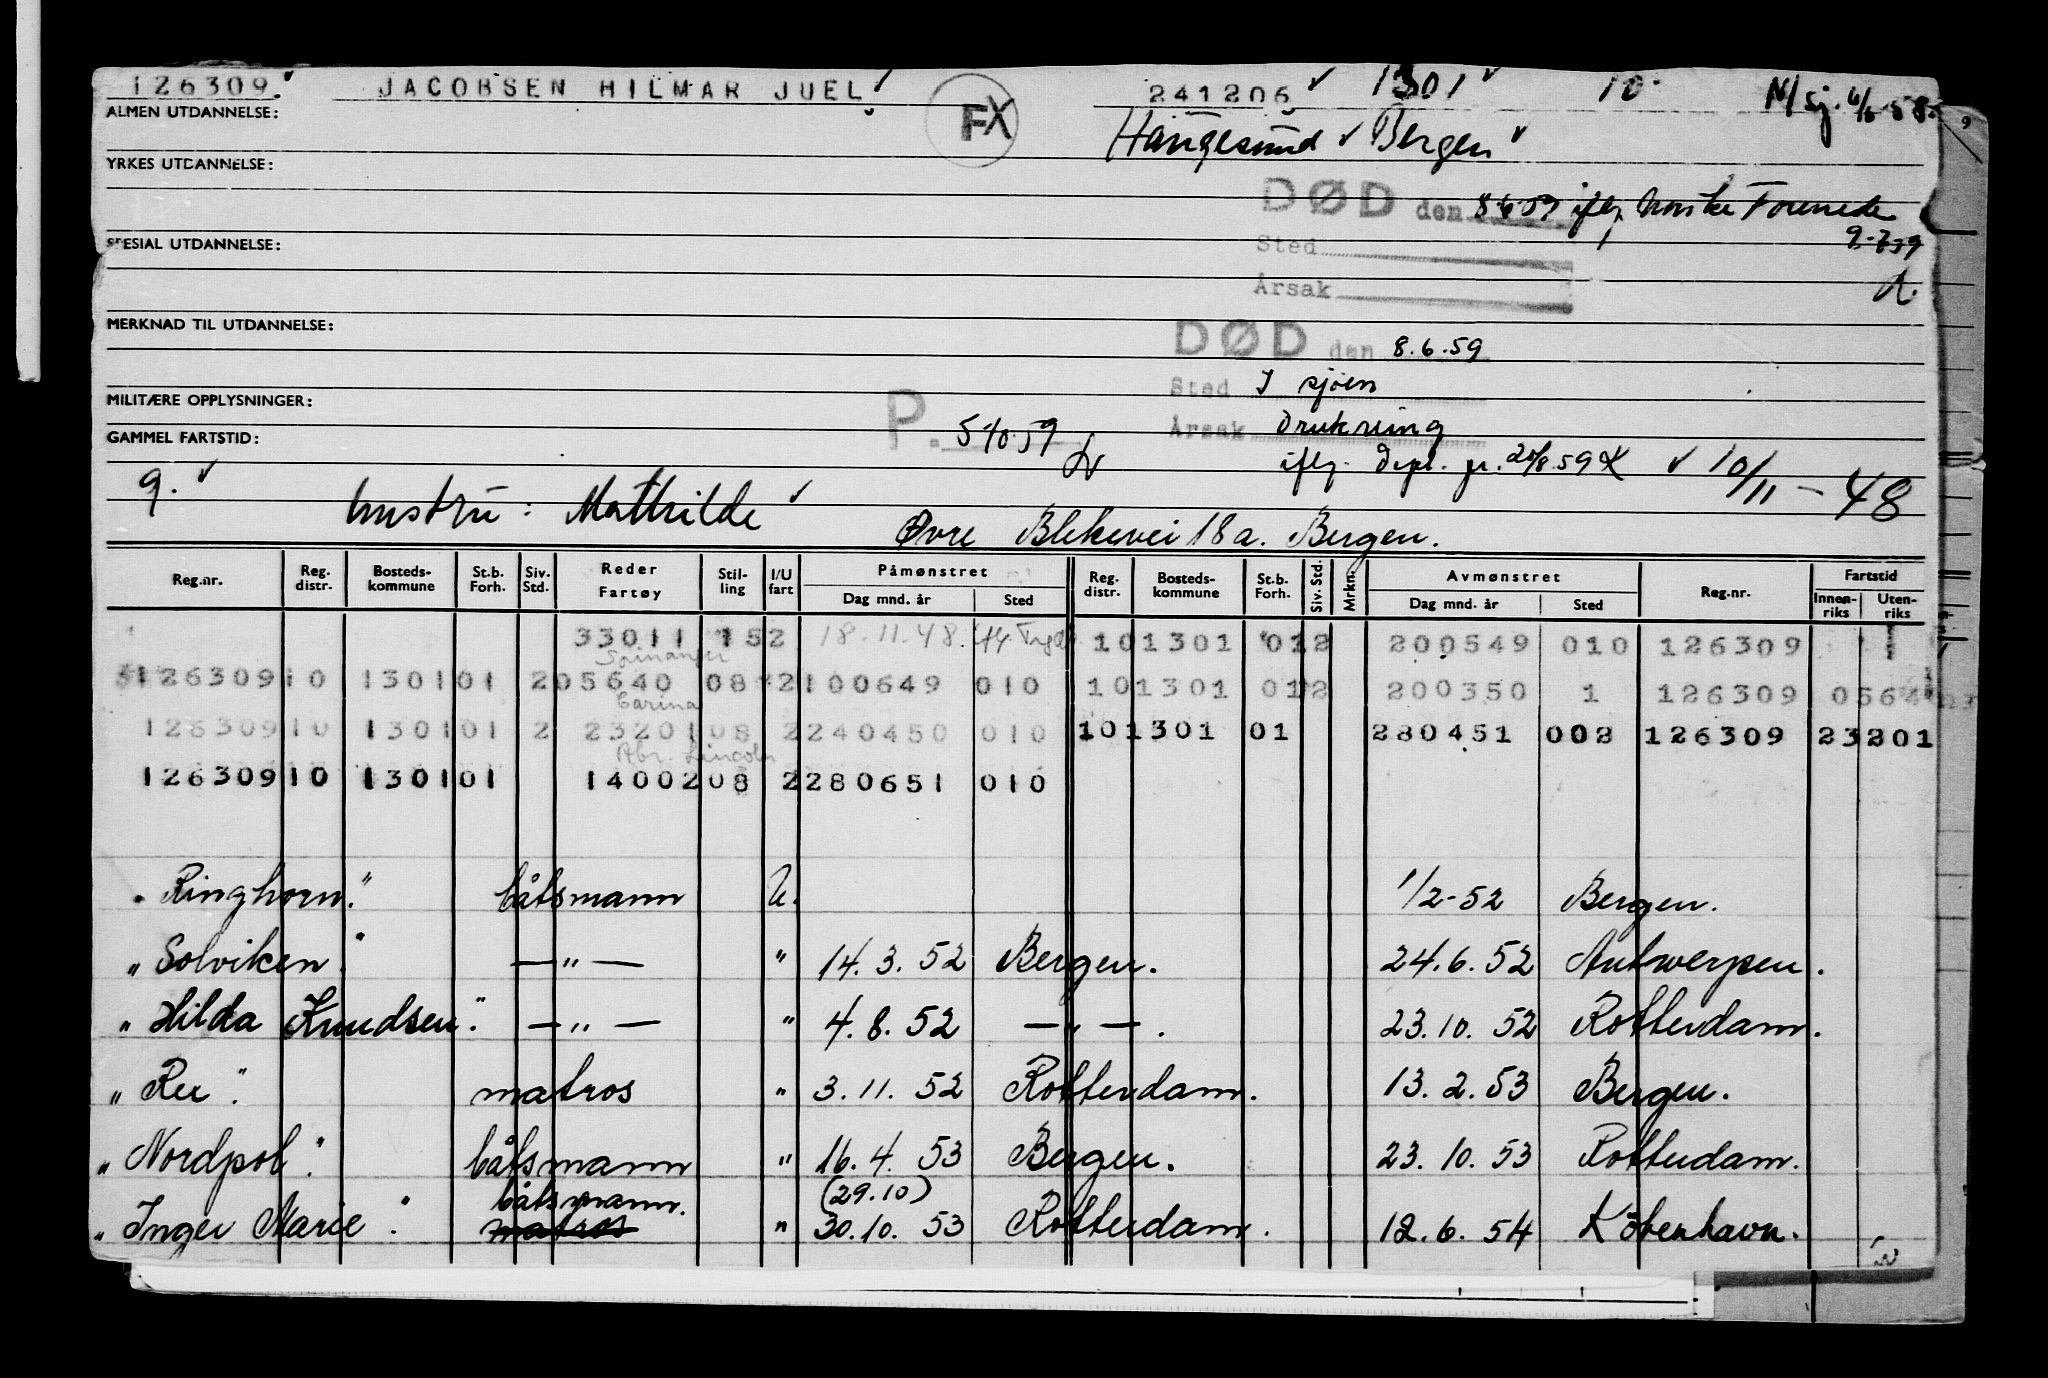 126309. JACOBSEN HILMAR JUEL FX 241206 1301 10
ALMEN UTDANNELSE:
Haugesund Bergen
YRKES UTDANNELSE:
DØD den 8.6.59 iflg. Norske Forenede
9-7-59
SPESIAL UTDANNELSE:
Sted
Årsak
MERKNAD TIL UTDANNELSE:
DØD den 8.6.59
Sted I sjøen
MILITÆRE OPPLYSNINGER:
Årsak Drukning
P. 5/10.59
GAMMEL FARTSTID:
iflg. Dept. 20/8.59 10/11-48
9. hustru: Mathilde
Øvre Blekevei 18 a. Bergen.
Reg.nr. Reg. distr. Bosteds- kommune St.b. Forh. Siv. Std. Reder Fartøy Stil- ling I/U fart Påmønstret Dag mnd. år Sted Reg. distr. Bosteds- kommune St.b. Forh. Siv. Std. Mrkn. Avmønstret Dag mnd. år Sted Reg.nr. Fartstid Innen- riks Uten- riks
33011 152 18.11.48. 10 1301 01 2 200549 010 126309
Spinanger
126309 10 1301 01 2 05640 08 2 100649 010 10 1301 01 2 200350 1 126309 0564
Carina
126309 10 1301 01 2 23201 08 2 240450 010 10 1301 01 280451 002 126309 23201
Abr. Lincoln
126309 10 1301 01 14002 08 2 280651 010
" Ringhorn." båtsmann U. 1/2-52 Bergen.
" Solviken." —"— " 14.3.52 Bergen. 24.6.52 Antwerpen.
" Hilda Knudsen." —"— " 4.8.52 —"—. 23.10.52 Rotterdam.
" Reu". matros " 3.11.52 Rotterdam. 13.2.53 Bergen.
" Nordpol". båtsmann " 16.4.53 Bergen. 23.10.53 Rotterdam.
båtsmann. (29.10)
" Inger Marie". matros " 30.10.53 Rotterdam. 12.6.54 Köbenhavn.